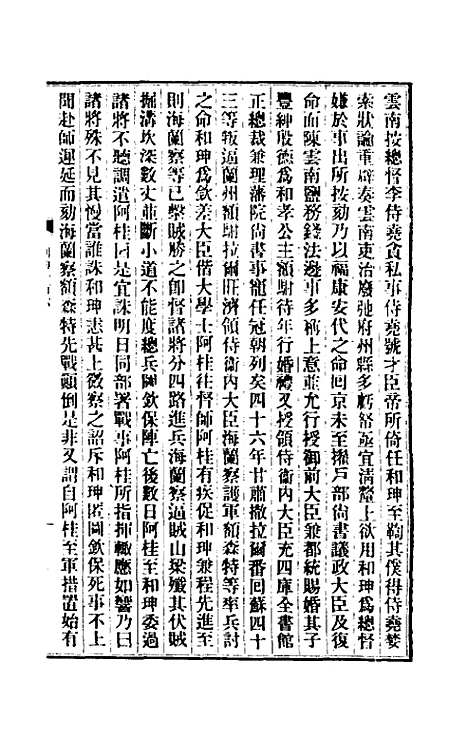 雲南按總督李侍堯貪私事侍堯號才臣帝所倚任和珅至鞫其僕得侍堯婪
索狀論重辟奏雲南吏治廢弛府州縣多虧帑亟宜淸釐上欲用和珅爲總督
嫌於事出所按劾乃以福康安代之命回京未至擢戶部尙書議政大臣及復
命面陳雲南鹽務錢法邊事多稱上意並允行授御前大臣兼都統賜婚其子
豐紳殷德爲和孝公主額駙待年行婚禮又授領侍衞內大臣充四庫全書館
正總裁兼理藩院尙書事寵任冠朝列矣四十六年甘肅撒拉爾番回蘇四十
三等叛逼蘭州額駙拉爾旺濟領侍衞內大臣海蘭察護軍額森特等率兵討
之命和珅爲欽差大臣偕大學士阿桂往督師阿桂有疾促和珅兼程先進至
則海蘭察等已擊賊勝之卽督諸將分四路進兵海蘭察逼賊山梁殲其伏賊
掘溝坎深數丈並斷小道不能度總兵圖欽保陣亡後數日阿桂至和珅委過
諸將不聽調遣阿桂曰是宜誅明日同部署戰事阿桂所指揮輒應如響乃曰
諸將殊不見其慢當誰誅和珅恚甚上微察之詔斥和珅匿圖欽保死事不上
聞赴師遲延而劾海蘭察額森特先戰顚倒是非又謂自阿桂至軍措置始有